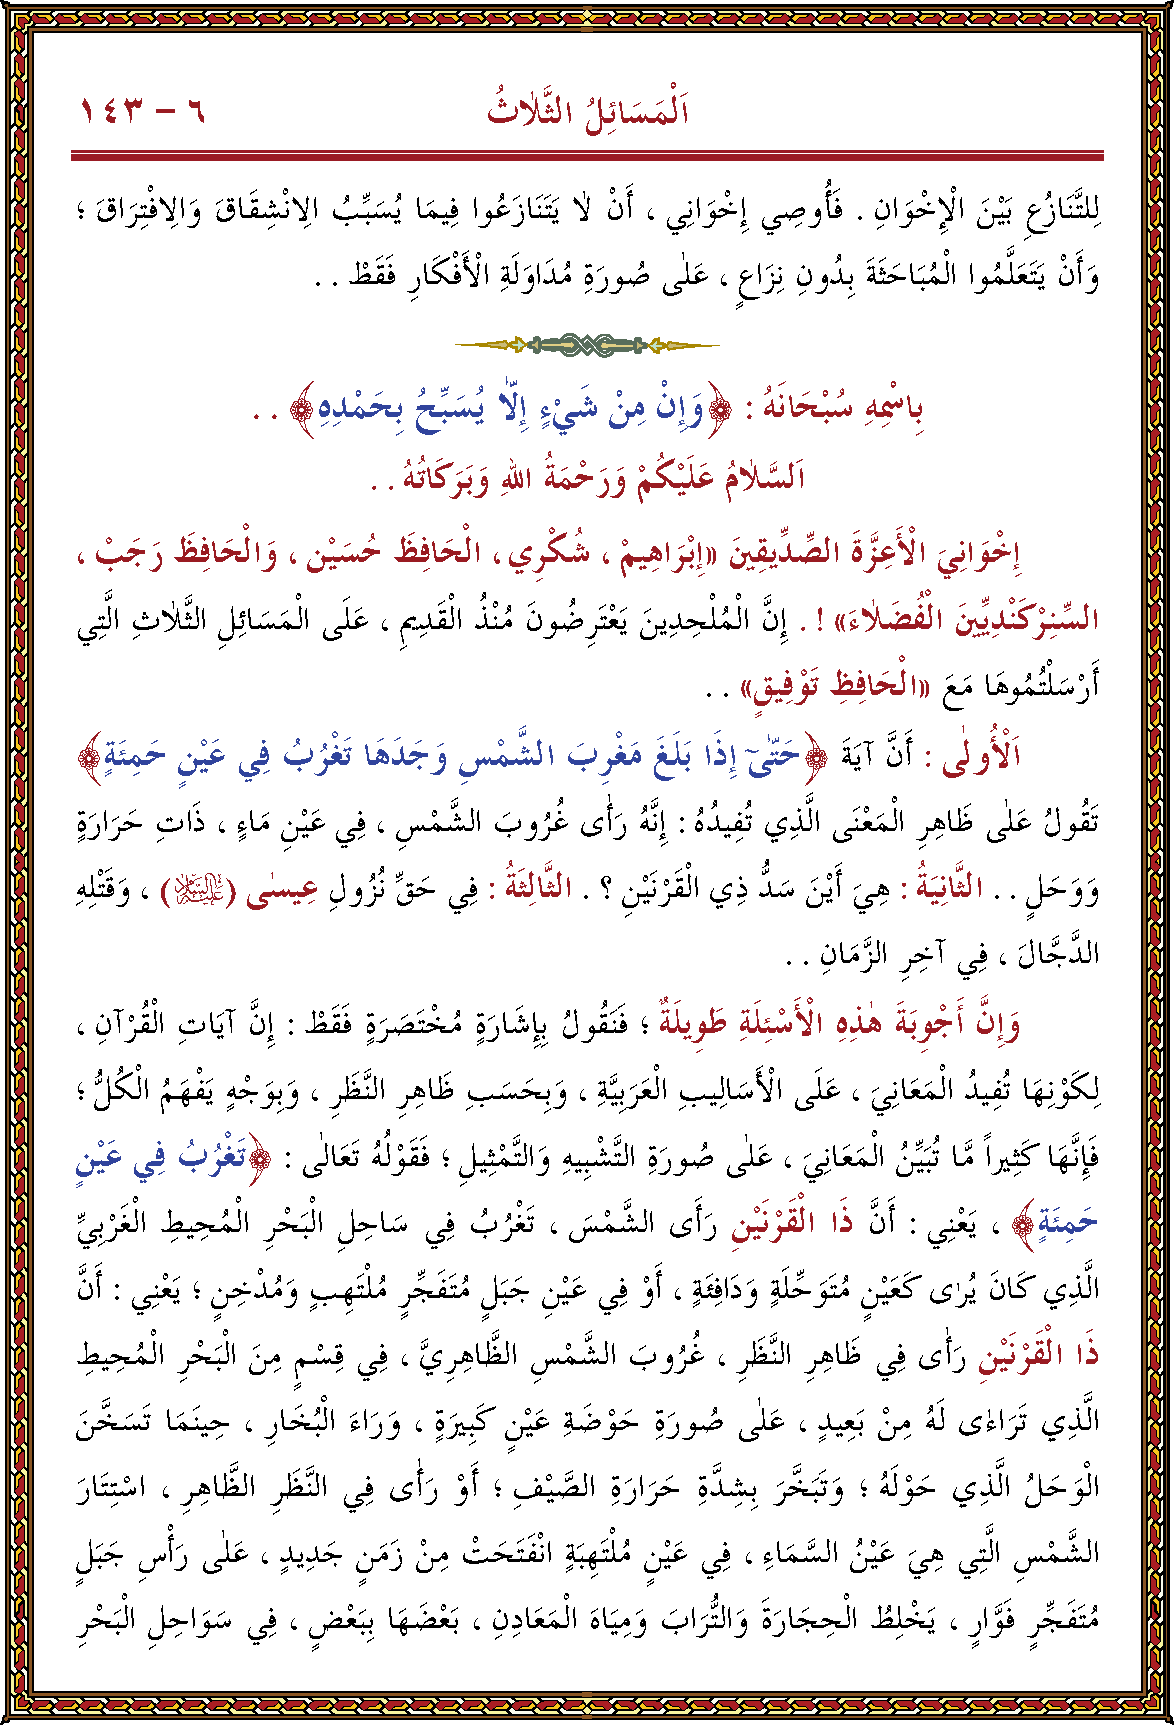 ٦ – ١٤٣ اَلْمَسَائِلُ الثَّلَاثُ
لِلتَّنَازُعِ بَيْنَ الْإِخْوَانِ . فَأُوصِي إِخْوَانِي ، أَنْ لَا يَتَنَازَعُوا فِيمَا يُسَبِّبُ الِانْشِقَاقَ وَالِافْتِرَاقَ ؛
وَأَنْ يَتَعَلَّمُوا الْمُبَاحَثَةَ بِدُونِ نِزَاعٍ ، عَلٰى صُورَةِ مُدَاوَلَةِ الْأَفْكَارِ فَقَطْ . .
بِاسْمِهِ سُبْحَانَهُ : ﴿وَإِنْ مِنْ شَيْءٍ إِلَّا يُسَبِّحُ بِحَمْدِهِ﴾ . .
اَلسَّلَامُ عَلَيْكُمْ وَرَحْمَةُ اللهِ وَبَرَكَاتُهُ . .
إِخْوَانِيَ الْأَعِزَّةَ الصِّدِّيقِينَ «إِبْرَاهِيمْ ، شُكْرِي ، الْحَافِظَ حُسَيْن ، وَالْحَافِظَ رَجَبْ ،
السِّنِرْكَنْدِيِّينَ الْفُضَلَاءَ» ! . إِنَّ الْمُلْحِدِينَ يَعْتَرِضُونَ مُنْذُ الْقَدِيمِ ، عَلَى الْمَسَائِلِ الثَّلَاثِ الَّتِي
أَرْسَلْتُمُوهَا مَعَ «الْحَافِظِ تَوْفِيقٍ» . .
اَلْأُولٰى : أَنَّ آيَةَ ﴿حَتّٰىٓ إِذَا بَلَغَ مَغْرِبَ الشَّمْسِ وَجَدَهَا تَغْرُبُ فِي عَيْنٍ حَمِئَةٍ﴾
تَقُولُ عَلٰى ظَاهِرِ الْمَعْنَى الَّذِي تُفِيدُهُ : إِنَّهُ رَأٰى غُرُوبَ الشَّمْسِ ، فِي عَيْنِ مَاءٍ ، ذَاتِ حَرَارَةٍ
وَوَحَلٍ . . الثَّانِيَةُ : هِيَ أَيْنَ سَدُّ ذِي الْقَرْنَيْنِ ؟ . الثَّالِثَةُ : فِي حَقِّ نُزُولِ عِيسٰى (عَلَيْهِ السَّلَامُ) ، وَقَتْلِهِ
الدَّجَّالَ ، فِي آخِرِ الزَّمَانِ . .
وَإِنَّ أَجْوِبَةَ هٰذِهِ الْأَسْئِلَةِ طَوِيلَةٌ ؛ فَنَقُولُ بِإِشَارَةٍ مُخْتَصَرَةٍ فَقَطْ : إِنَّ آيَاتِ الْقُرْآنِ ،
لِكَوْنِهَا تُفِيدُ الْمَعَانِيَ ، عَلَى الْأَسَالِيبِ الْعَرَبِيَّةِ ، وَبِحَسَبِ ظَاهِرِ النَّظَرِ ، وَبِوَجْهٍ يَفْهَمُهُ الْكُلُّ ؛
فَإِنَّهَا كَثِيراً مَّا تُبَيِّنُ الْمَعَانِيَ ، عَلٰى صُورَةِ التَّشْبِيهِ وَالتَّمْثِيلِ ؛ فَقَوْلُهُ تَعَالٰى : ﴿تَغْرُبُ فِي عَيْنٍ
حَمِئَةٍ﴾ ، يَعْنِي : أَنَّ ذَا الْقَرْنَيْنِ رَأَى الشَّمْسَ ، تَغْرُبُ فِي سَاحِلِ الْبَحْرِ الْمُحِيطِ الْغَرْبِيِّ
الَّذِي كَانَ يُرٰى كَعَيْنٍ مُتَوَحِّلَةٍ وَدَافِئَةٍ ، أَوْ فِي عَيْنِ جَبَلٍ مُتَفَجِّرٍ مُلْتَهِبٍ وَمُدْخِنٍ ؛ يَعْنِي : أَنَّ
ذَا الْقَرْنَيْنِ رَأٰى فِي ظَاهِرِ النَّظَرِ ، غُرُوبَ الشَّمْسِ الظَّاهِرِيَّ ، فِي قِسْمٍ مِنَ الْبَحْرِ الْمُحِيطِ
الَّذِي تَرَاءٰى لَهُ مِنْ بَعِيدٍ ، عَلٰى صُورَةِ حَوْضَةِ عَيْنٍ كَبِيرَةٍ ، وَرَاءَ الْبُخَارِ ، حِينَمَا تَسَخَّنَ
الْوَحَلُ الَّذِي حَوْلَهُ ؛ وَتَبَخَّرَ بِشِدَّةِ حَرَارَةِ الصَّيْفِ ؛ أَوْ رَأٰى فِي النَّظَرِ الظَّاهِرِ ، اسْتِتَارَ
الشَّمْسِ الَّتِي هِيَ عَيْنُ السَّمَاءِ ، فِي عَيْنٍ مُلْتَهِبَةٍ انْفَتَحَتْ مِنْ زَمَنٍ جَدِيدٍ ، عَلٰى رَأْسِ جَبَلٍ
مُتَفَجِّرٍ فَوَّارٍ ، يَخْلِطُ الْحِجَارَةَ وَالتُّرَابَ وَمِيَاهَ الْمَعَادِنِ ، بَعْضَهَا بِبَعْضٍ ، فِي سَوَاحِلِ الْبَحْرِ